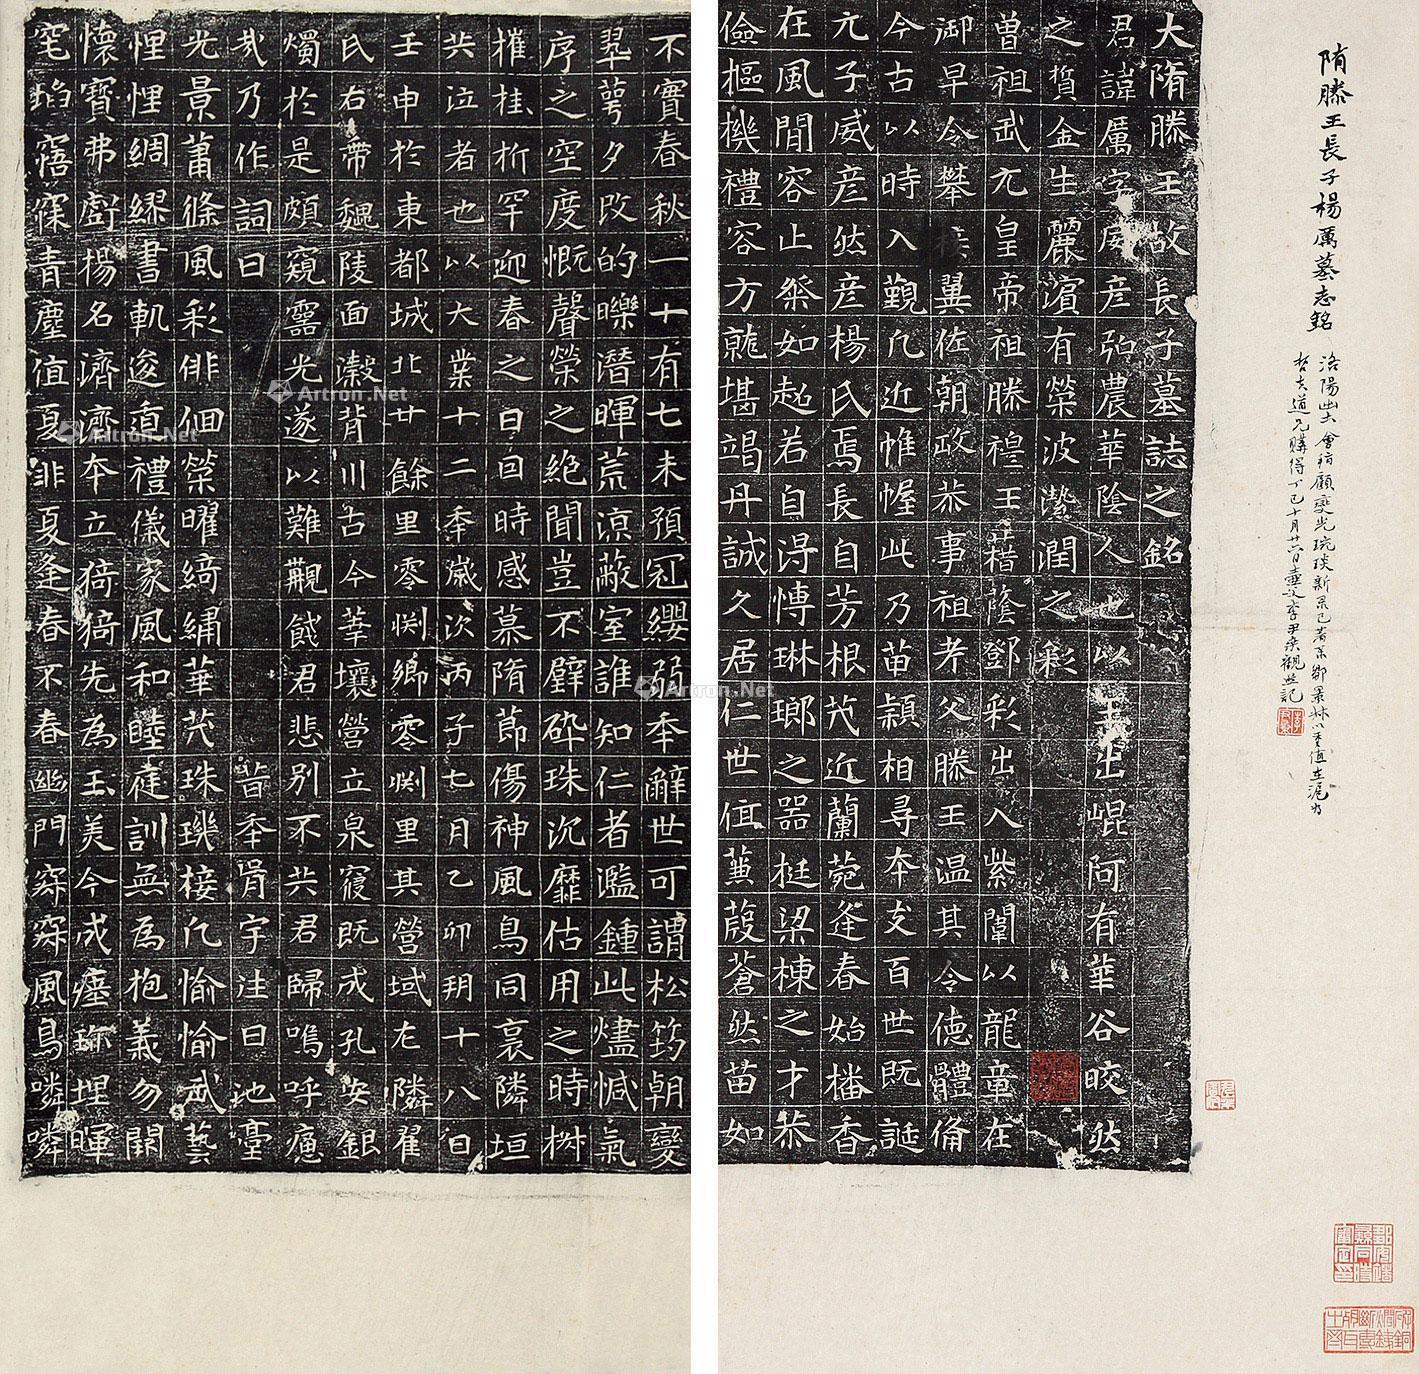 隋滕王長子楊厲墓志銘
洛陽出土會稽顧燮光琬琰新
大隋滕王故長子墓誌之銘
君諱厲字威彦弘農華陰人也以玉出崐阿有華谷皎然
之質金生麗濵有榮波潔潤之彩
曾祖武元皇帝祖滕穆王楷蔭鄧彩出入紫闈以龍章在
御早令攀翼佐朝政恭事祖考父滕王温其令德體俻
今古以時入觀凡近帷幄此乃苗穎相尋夲支百世既誕
元子威彦然彦楊氏焉長自芳根茂近蘭菀逢春始播香
在風閒容止桀如起若自淂慱琳瑯之器挺梁棟之才恭
儉樞機禮容方就堪竭丹誠久居仁世值蒹葭蒼然苗如
不實春秋一十有七未預冠纓弱秊辭世可謂松筠朝變
翠萼夕改的皪潛暉荒凉蔽室誰知仁者濫鍾此燼慽氣
序之空度慨聲榮之絶聞豈不璧碎珠沉靡估用之時樹
摧桂析罕迎春之日曰時感慕隋莭傷神風鳥同哀隣垣
共泣者也以大業十二秊歲次丙子七月乙卯玥十八日
壬申於東都城北廿餘里零渕鄉零渕里其營域左隣翟
氏右帶魏陵面瀔背川古今葬壤營立泉寢既成孔安鉬
燭於是頗窺靈光遂以難覯餞君悲别不共君歸嗚呼㥼
哉乃作詞曰
昔秊胥宇注曰地臺
光景蕭條風彩俳佪榮曜綺繡華茂珠璣接凡愉愉武藝
悝悝綢繆書軌逡直禮儀家風和睦庭訓無為抱義勿闕
懷寶弗虧楊名濟濟夲立猗猗先為玉美今戍塵珎埋暉
窀埳窹寐青塵值夏非夏逢春不春幽門窲窲風鳥嶙嶙